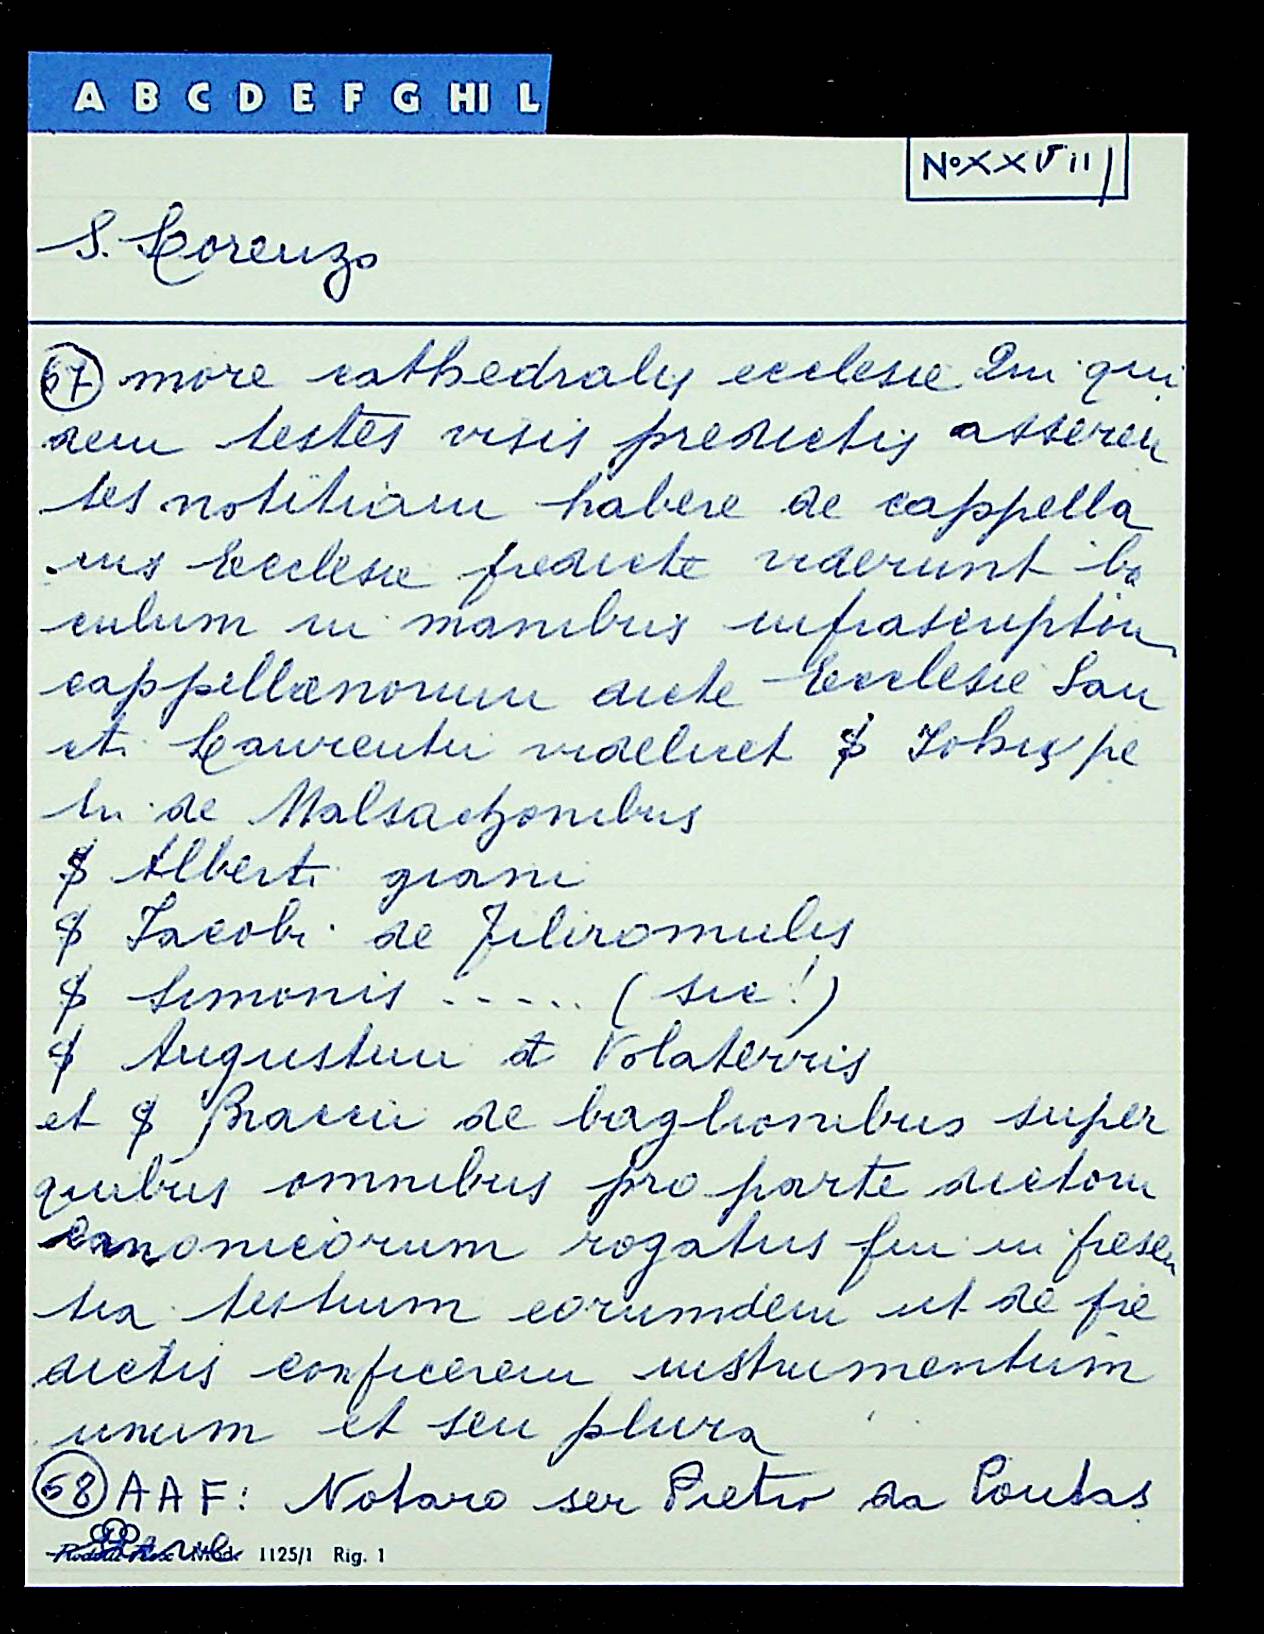 A B C D E F G HI L
No XXVIII
S. Lorenzo
67 more cathedralis ecclesie Qui qui
dem testes visis predictis asseren
tes notitiam habere de cappella
nis Ecclesie predicte viderunt ba
culum in manibus infrascriptoru
cappellanorum dicte Ecclesie San
cti Laurentii videlicet $ Johis pe
tri de Malsachonibus
$ Alberti giani
$ Jacobi de Filiromulis
$ Simonis ..... (sic!)
$ Augustini d Volaterris
et $ Braccii de baglionibus super
quibus omnibus pro parte dictoru
Canonicorum rogatus fui in presen
tia testium eorumdem ut de pre
dictis conficerem instrumentum
unum et seu plura
68 AAF: Notaro ser Pietro da Pontas
1125/1 Rig. 1